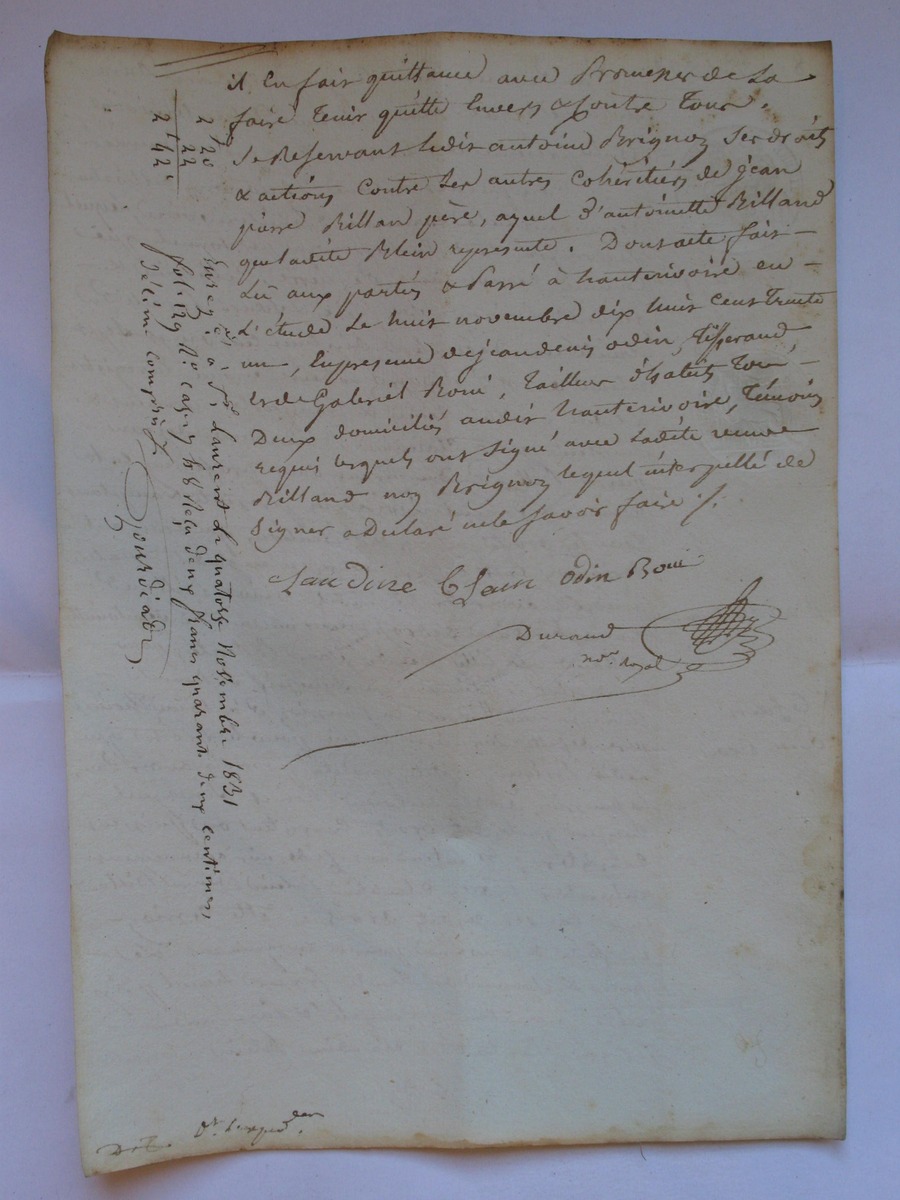 il En fait quittance avec Promesse de La
faire Tenir quitte Envers & Contre Tous.
Se Reservant Ledit antoine Brignoz Ses droits
& actions Contre Les autres Cohéritiers de jean
pierre Rillan père, aquel d'antoinette Rilland
que ladite Blein represente. Dont acte fait
Lû aux parties & Passé à hauterivoire en
L'étude Le huit novembre dix huit Cent Trente
un, En presence de jean denis odin, Tisserand,
et de Gabriel Boni, Tailleur d'habits Tous
Deux domiciliés audit hauterivoire, Témoins
requis lesquels ont signé avec Ladite veuve
Rilland non Brignoz lequel interpellé de
Signer a Declaré ne le savoir faire /.
Claudine blain odin Boni
Durand
nore. Royal
2f 20
22
2f 42c
Enregé. à St. Laurent Le quatorze Novembre 1831
folio 129 Ro. Reçu deux francs quarante deux centimes,
décime compris